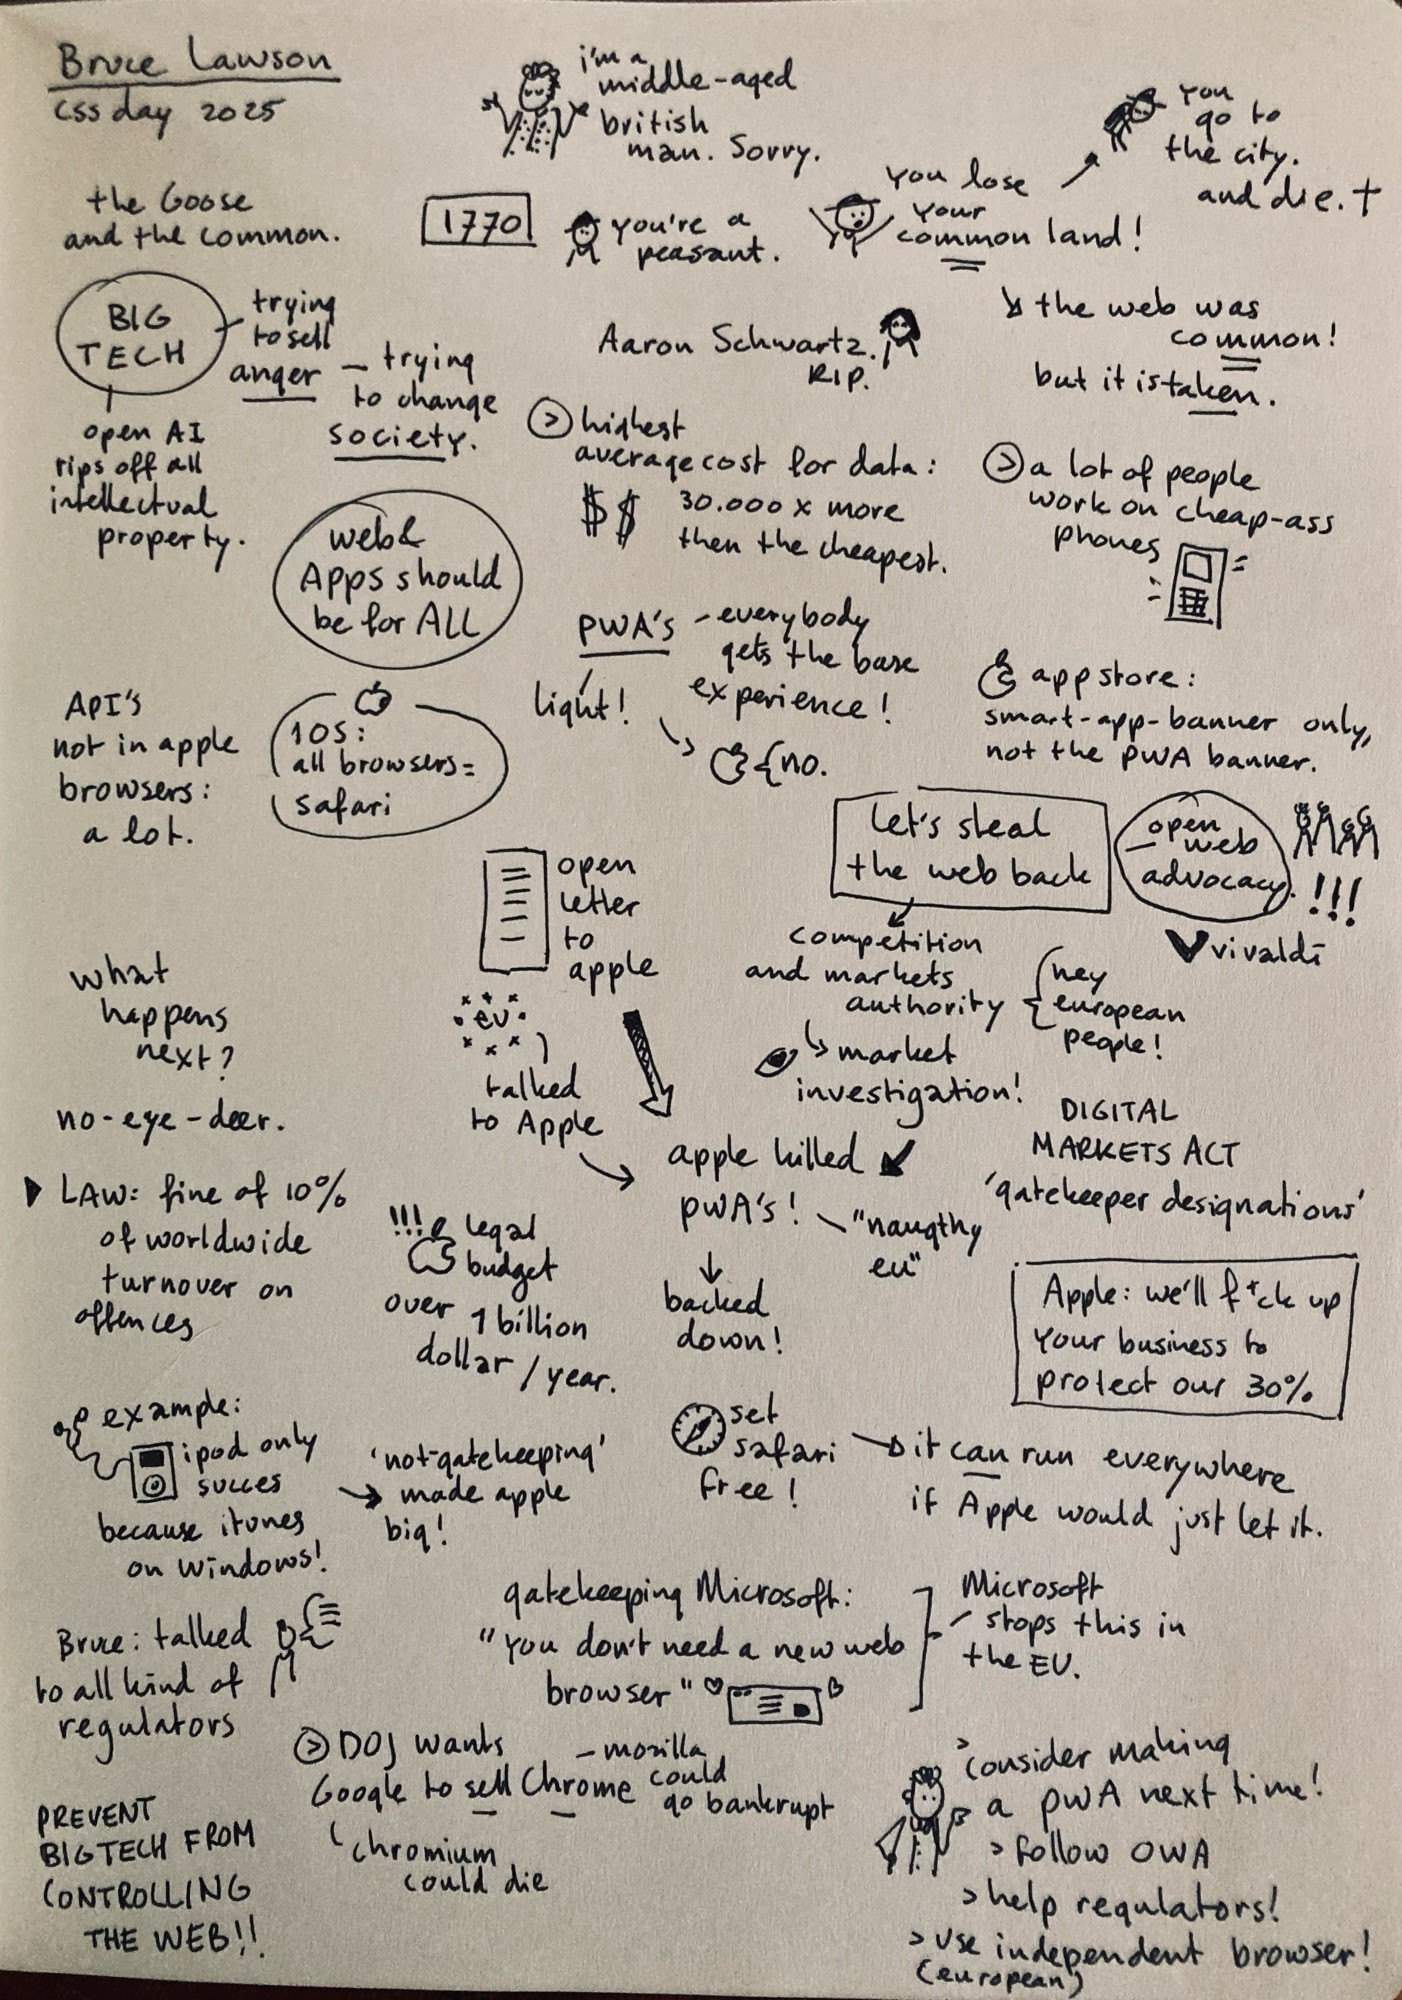 Bruce Lawson
css day 2025
i'm a
middle-aged
british
man. Sorry.
the Goose
and the common.
1770
you're a
peasant.
You lose
your
common land!
You
go to
the city.
and die. †
BIG
TECH
trying
to sell
anger
– trying
to change
society.
open AI
rips off all
intellectual
property.
Aaron Schwartz.
RIP.
the web was
common!
but it is taken.
highest
average cost for data:
$$ 30.000 x more
then the cheapest.
a lot of people
work on cheap-ass
phones
web &
Apps should
be for ALL
PWA's
– everybody
gets the base
experience!
light!
{no.
app store:
smart-app-banner only,
not the PWA banner.
API's
not in apple
browsers:
a lot.
IOS:
all browsers =
safari
Let's steal
the web back
open
web
advocacy.
!!!
vivaldi
open
letter
to
apple
competition
and markets
authority
hey
european
people!
market
investigation!
what
happens
next?
no-eye-deer.
eu
talked
to Apple
apple killed
PWA's!
"naugthy
eu"
backed
down!
DIGITAL
MARKETS ACT
'gatekeeper designations'
LAW: fine of 10%
of worldwide
turnover on
offences
!!!
legal
budget
over 1 billion
dollar / year.
Apple: we'll f*ck up
your business to
protect our 30%
example:
ipod only
succes
because itunes
on windows!
'not-gatekeeping'
made apple
big!
set
safari
free!
it can run everywhere
if Apple would just let it.
gatekeeping Microsoft:
"You don't need a new web
browser"
Microsoft
– stops this in
the EU.
Bruce: talked
to all kind of
regulators
DOJ wants
Google to sell Chrome
– mozilla
could
go bankrupt
chromium
could die
PREVENT
BIGTECH FROM
CONTROLLING
THE WEB!!
> consider making
a PWA next time!
> follow OWA
> help regulators!
> use independent browser!
(european)